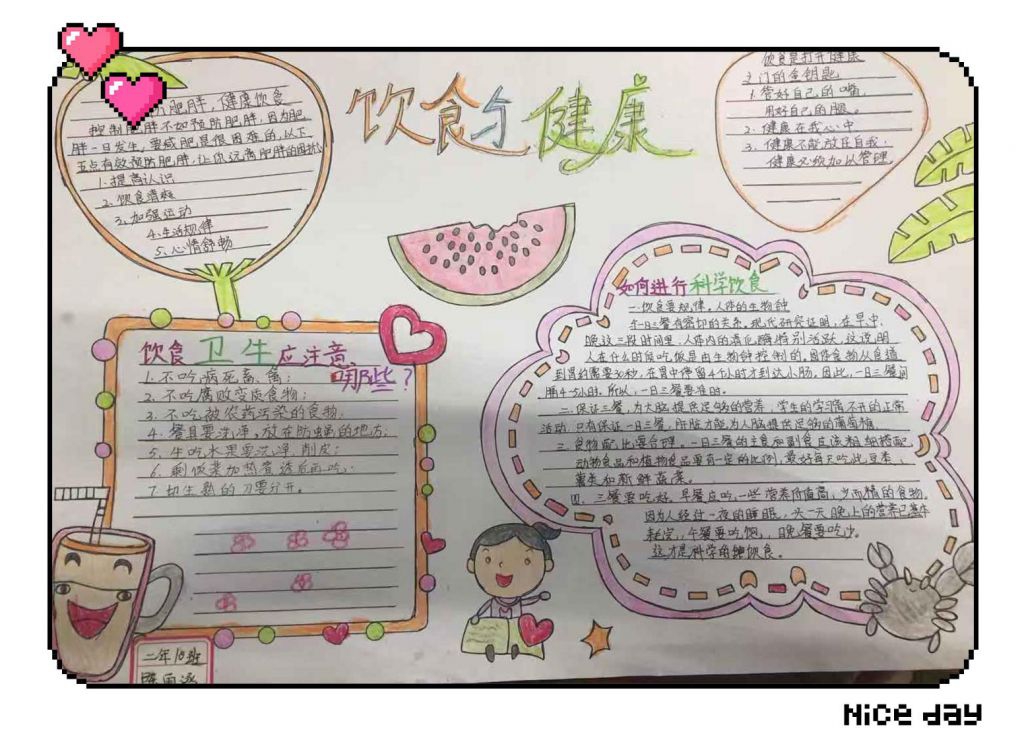 饮食与健康
肥胖，健康饮食
控制肥胖不如预防肥胖，因为肥
胖一旦发生，要减肥是很困难的，以下
五点有效预防肥胖，让你远离肥胖的困扰
1.提高认识
2.饮食清
3.加强运动
4.生活规律
5.心情舒畅
饮食是打开健康
之门的金钥匙
1.管好自己的嘴
用好自己的腿。
2.健康在我心中
3.健康不能放任自我，
健康必须加以管理
饮食卫生应注意
哪些？
1.不吃病死畜、禽；
2.不吃腐败变质食物；
3.不吃被农药污染的食物；
4.餐具要洗净，放在防蝇的地方；
5.生吃水果要洗净、削皮；
6.剩饭菜加热煮透后再吃；
7.切生熟的刀要分开。
如何进行科学饮食
一.饮食要规律。人体的生物钟
与一日三餐有密切的关系。现代研究证明，在早中
晚这三段时间里，人体内的消化酶特别活跃，这说明
人在什么时候吃饭是由生物钟控制的。固体食物从食道
到胃约需要30秒，在胃中停留4个小时才到达小肠。因此，一日三餐间
隔4-5小时。所以，一日三餐要准时。
二.保证三餐，为大脑提供足够的营养，学生的学习离不开的正常
活动。只有保证一日三餐，肝脏才能为大脑提供足够的葡萄糖
三.食物配比要合理。一日三餐的主食和副食应该粗细搭配
动物食品和植物食品要有一定的比例，最好每天吃些豆类、
薯类和新鲜蔬菜。
四.三餐要吃好。早餐应吃一些营养价值高，少而精的食物。
因为人经过一夜的睡眠，头一天晚上的营养已基本
耗完，午餐要吃饱，晚餐要吃少。
这才是科学的健饮食。
二年10班
Nice day